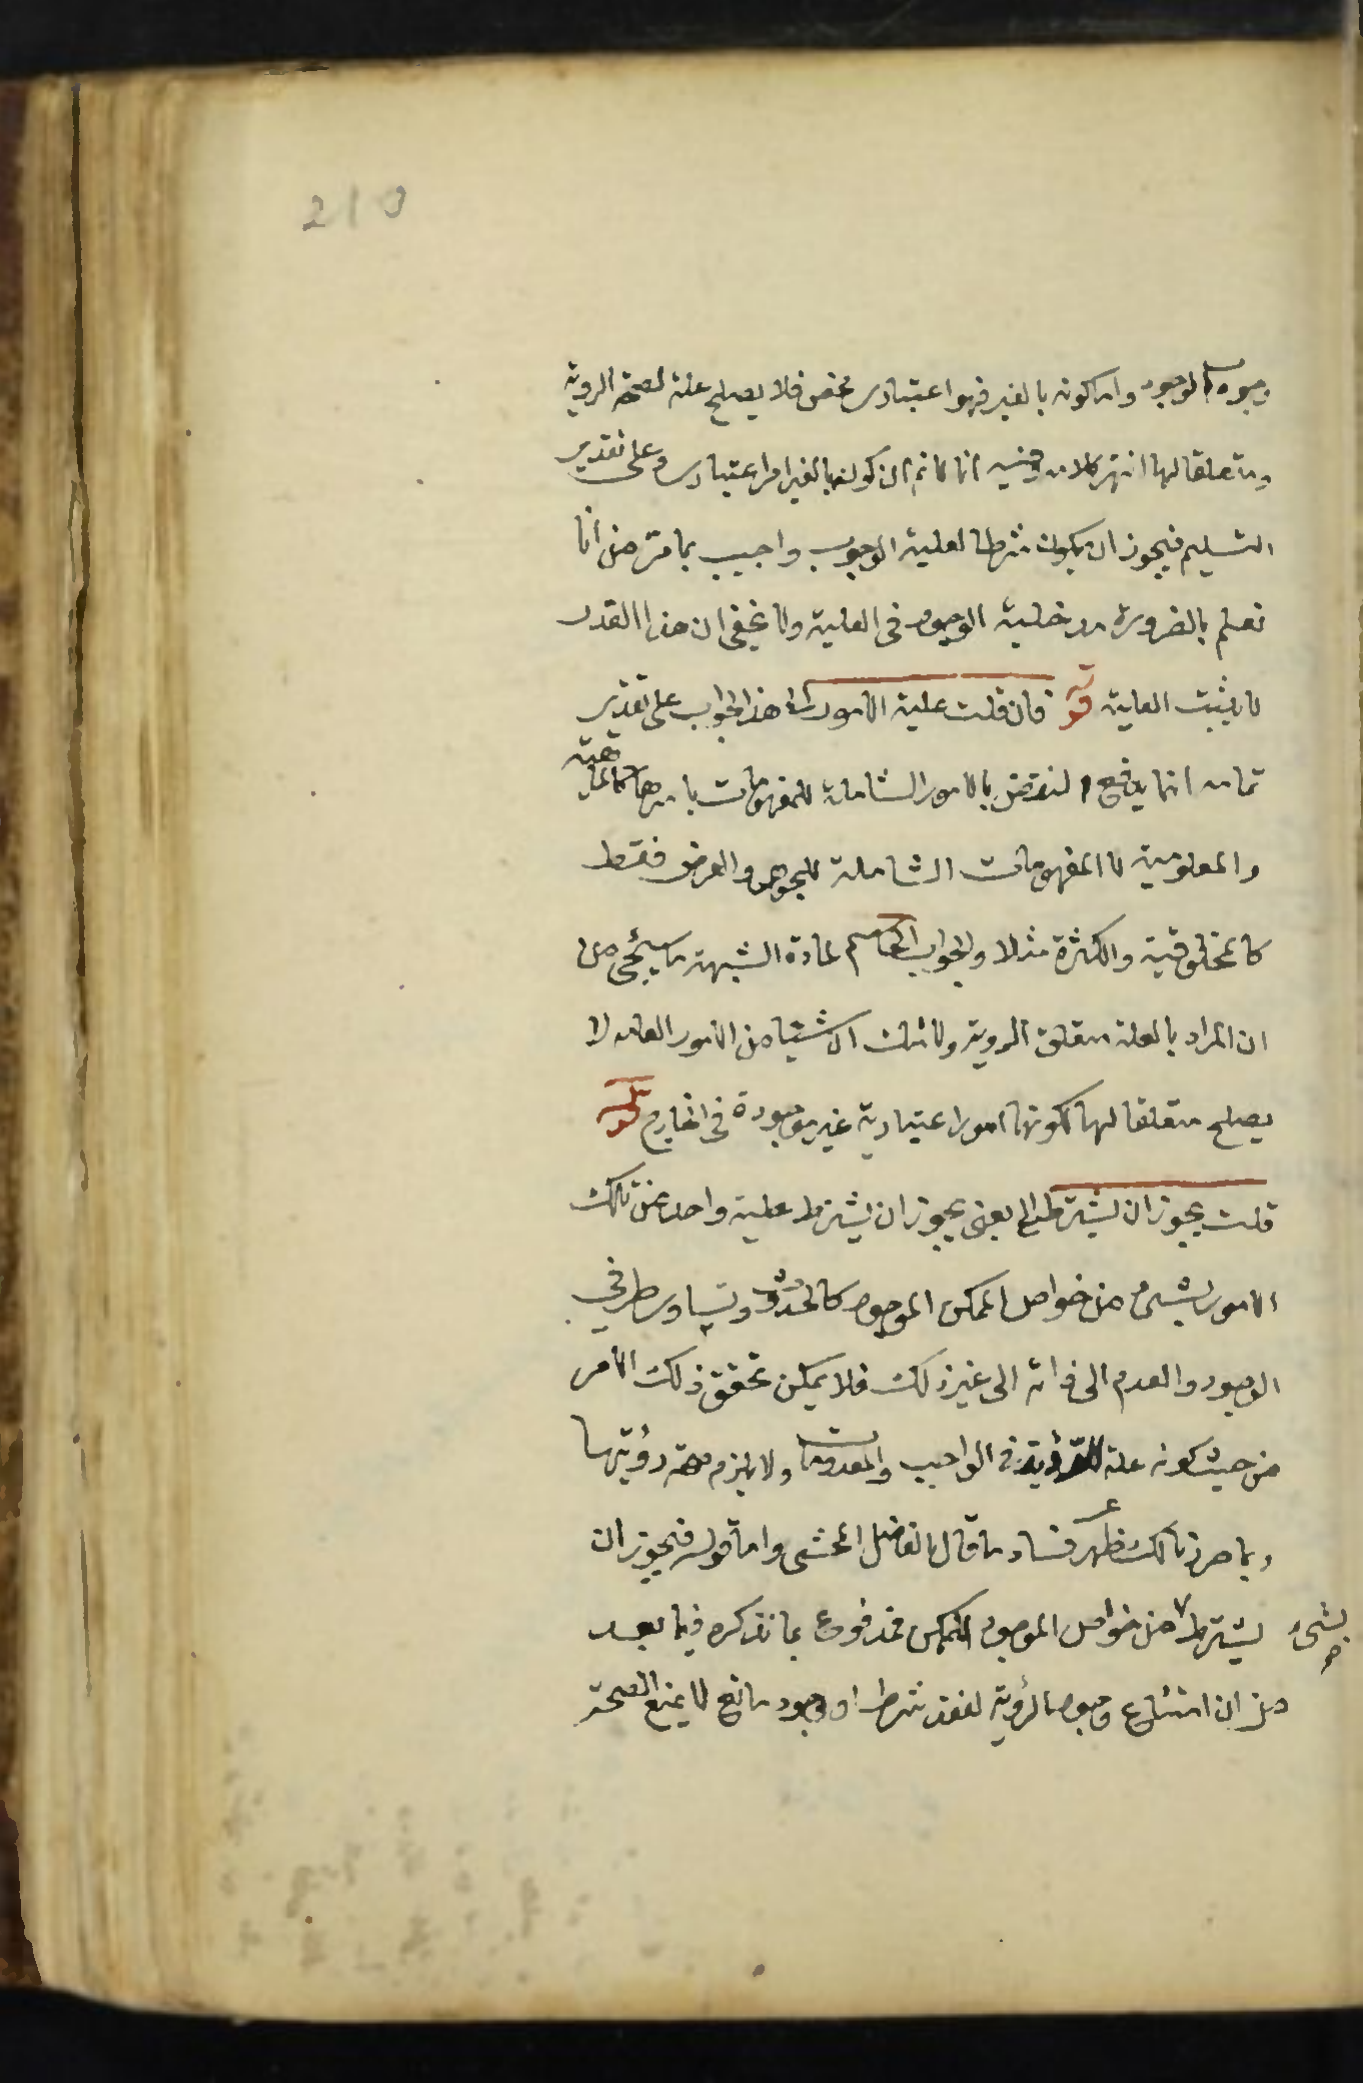 210
وجوب الوجود واما كونه بالغير فهو اعتبارى محض فلا يصلح علة لصحة الروية
ومتعلقا لها انتهى كلامه وفيه انا لا نم ان كونه بالغير امر اعتبارى وعلى تقدير
التسليم فيجوز ان يكون شرطا لعلية الوجوب واجيب بما مر من انا
نعلم بالضرورة مدخلية الوجود فى العلية ولا يخفى ان هذا القدر
لا يثبت العلية قوله فان قلت علية الامور الخ هذا الجواب على تقدير
تمامه انما يدفع النقض بالامور الشاملة للمفهومات باسرها كالماهية
والمعلومية لا المفهومات الشاملة للجوهر والعرض فقط
كالمخلوقية والكثرة مثلا والجواب الحاسم لمادة الشبهة ما سيجئ من
ان المراد بالعلة متعلق الروية ولا شك ان شيئا من الامور العامه لا
يصلح متعلقا لها لكونها امورا اعتبارية غير موجودة فى الخارج قوله
قلت يجوز ان يشترط الخ يعنى يجوز ان يشترط علية واحد من تلك
الامور بشئ من خواص الممكن الموجود كالحدوث وتساوى طرفى
الوجود والعدم الى ذاته الى غير ذلك فلا يمكن تحقق ذلك الامر
من حيث كونه علة للرؤية فى الواجب والمعدومات ولا يلزم صحة رؤيتها
وبما حررنا لك ظهر فساد ما قال الفاضل المحشى واما قوله فيجوز ان
يشترط بشئ من خواص الموجود الممكن فمدفوع بما نذكره فيما بعد
من ان امتناع وجود الرؤية لفقد شرط او وجود مانع لا يمنع الصحة